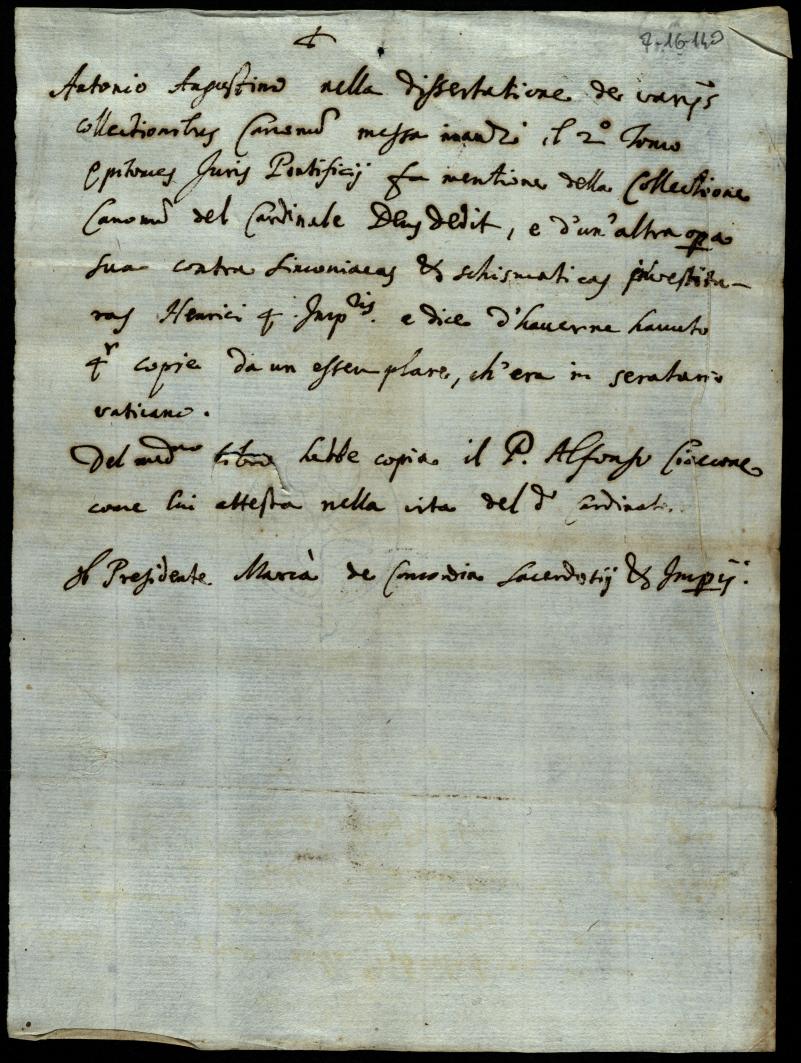 Antonio Augustino nella dissertatione de varijs
collectionibus Canonū messa inanzi il 2° Tomo
Epitomes Juris Pontificij fa mentione della Collectione
Canonū del Cardinale Deus dedit, e d'un'altra opa
sua contra simoniacas & schismaticas investitu-
ras Henrici 4. Imp:ris. e dice d'haverne havuto
4r copie da un essemplare, ch'era in
vaticano.
Del medmo libro hebbe copia il P. Alfonso Ciaccone
come lui attesta nella vita del d° Cardinale.
Presidente Marca de Concordia Sacerdotij & Impij.